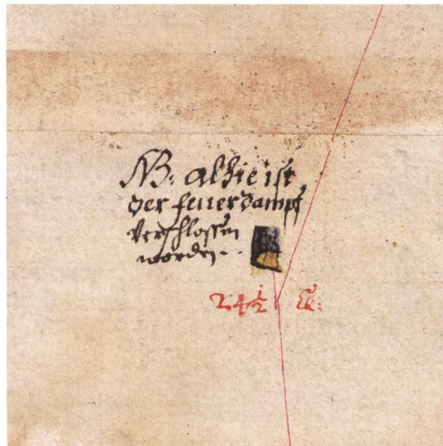 NB: alhie ist
der feuer dampf
verschlossen
worden.
24½